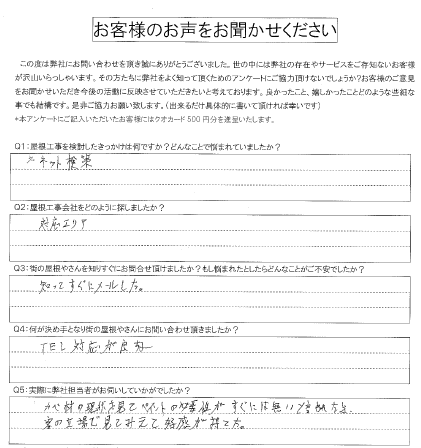 お客様のお声をお聞かせください
この度は弊社にお問い合わせを頂き誠にありがとうございました。世の中には弊社の存在やサービスをご存知ないお客様
が沢山いらっしゃいます。その方たちに弊社をよく知って頂くためのアンケートにご協力頂けないでしょうか？お客様のご意見
をお聞かせいただき今後の活動に反映させていただきたいと考えております。良かったこと、嬉しかったことどのような些細な
事でも結構です。是非ご協力お願い致します。（出来るだけ具体的に書いて頂ければ幸いです）
*本アンケートにご記入いただいたお客様にはクオカード500円分を進呈いたします。
Q1：屋根工事を検討したきっかけは何ですか？どんなことで悩まれていましたか？
ネット検索
Q2：屋根工事会社をどのように探しましたか？
対応エリア
Q3：街の屋根やさんを知りすぐにお問合せ頂けましたか？もし悩まれたとしたらどんなことがご不安でしたか？
知ってすぐにメールした。
Q4：何が決め手となり街の屋根やさんにお問い合わせ頂きましたか？
TEL対応が良
Q5：実際に弊社担当者がお伺いしていかがでしたか？
の現状を見てペイントの必要性がすぐには無い
客の立場で見てみえて好感が持てた。